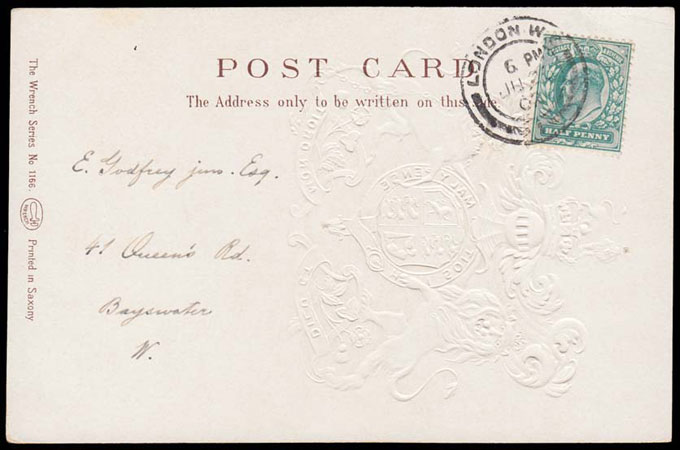 POST CARD
The Address only to be written on this side.
E. Godfrey junr. Esq.
41 Queen's Rd.
Bayswater
W.
The Wrench Series No 1166.
WRENCH
Printed in Saxony
LONDON W
6 PM
HALF PENNY
HONI SOIT
MAL Y PENSE
DIEU ET
MON DROIT